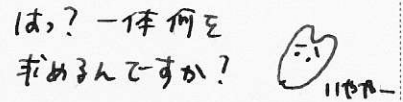 はっ？一体何を
求めるんですか？
いややー